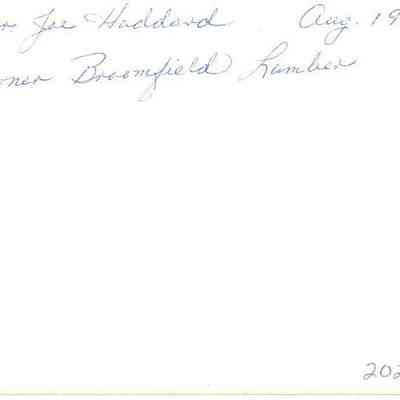 r Joe Haddard Aug. 19
oner Broomfield Lumber
202